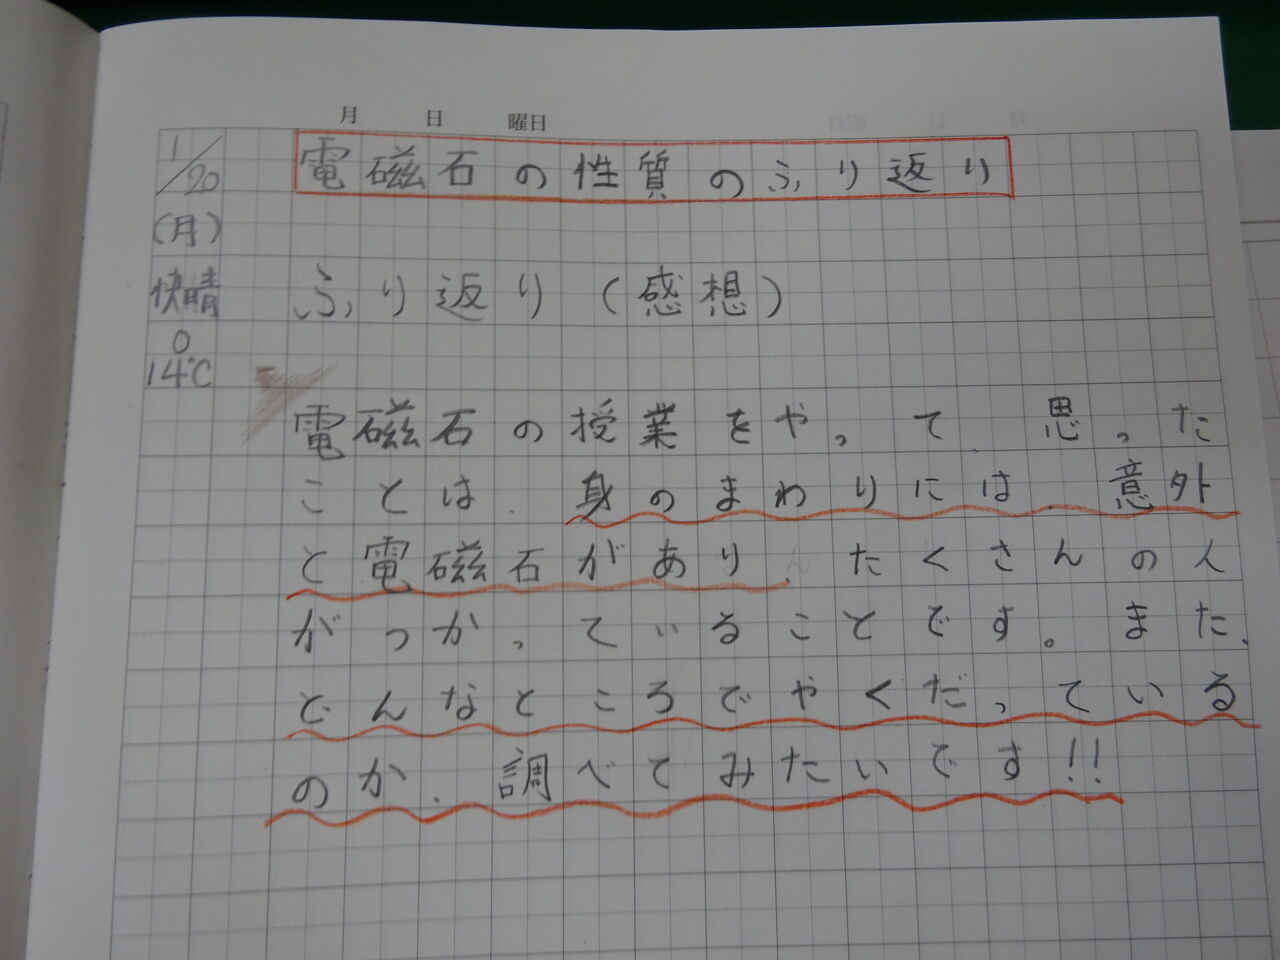 月 日 曜日
1/20 電磁石の性質のふり返り
(月)
快晴 ふり返り(感想)
0
14℃
電磁石の授業をやって、思った
ことは、身のまわりには、意外
と電磁石があり、たくさんの人
がつかっていることです。また、
どんなところでやくだっている
のか、調べてみたいです!!